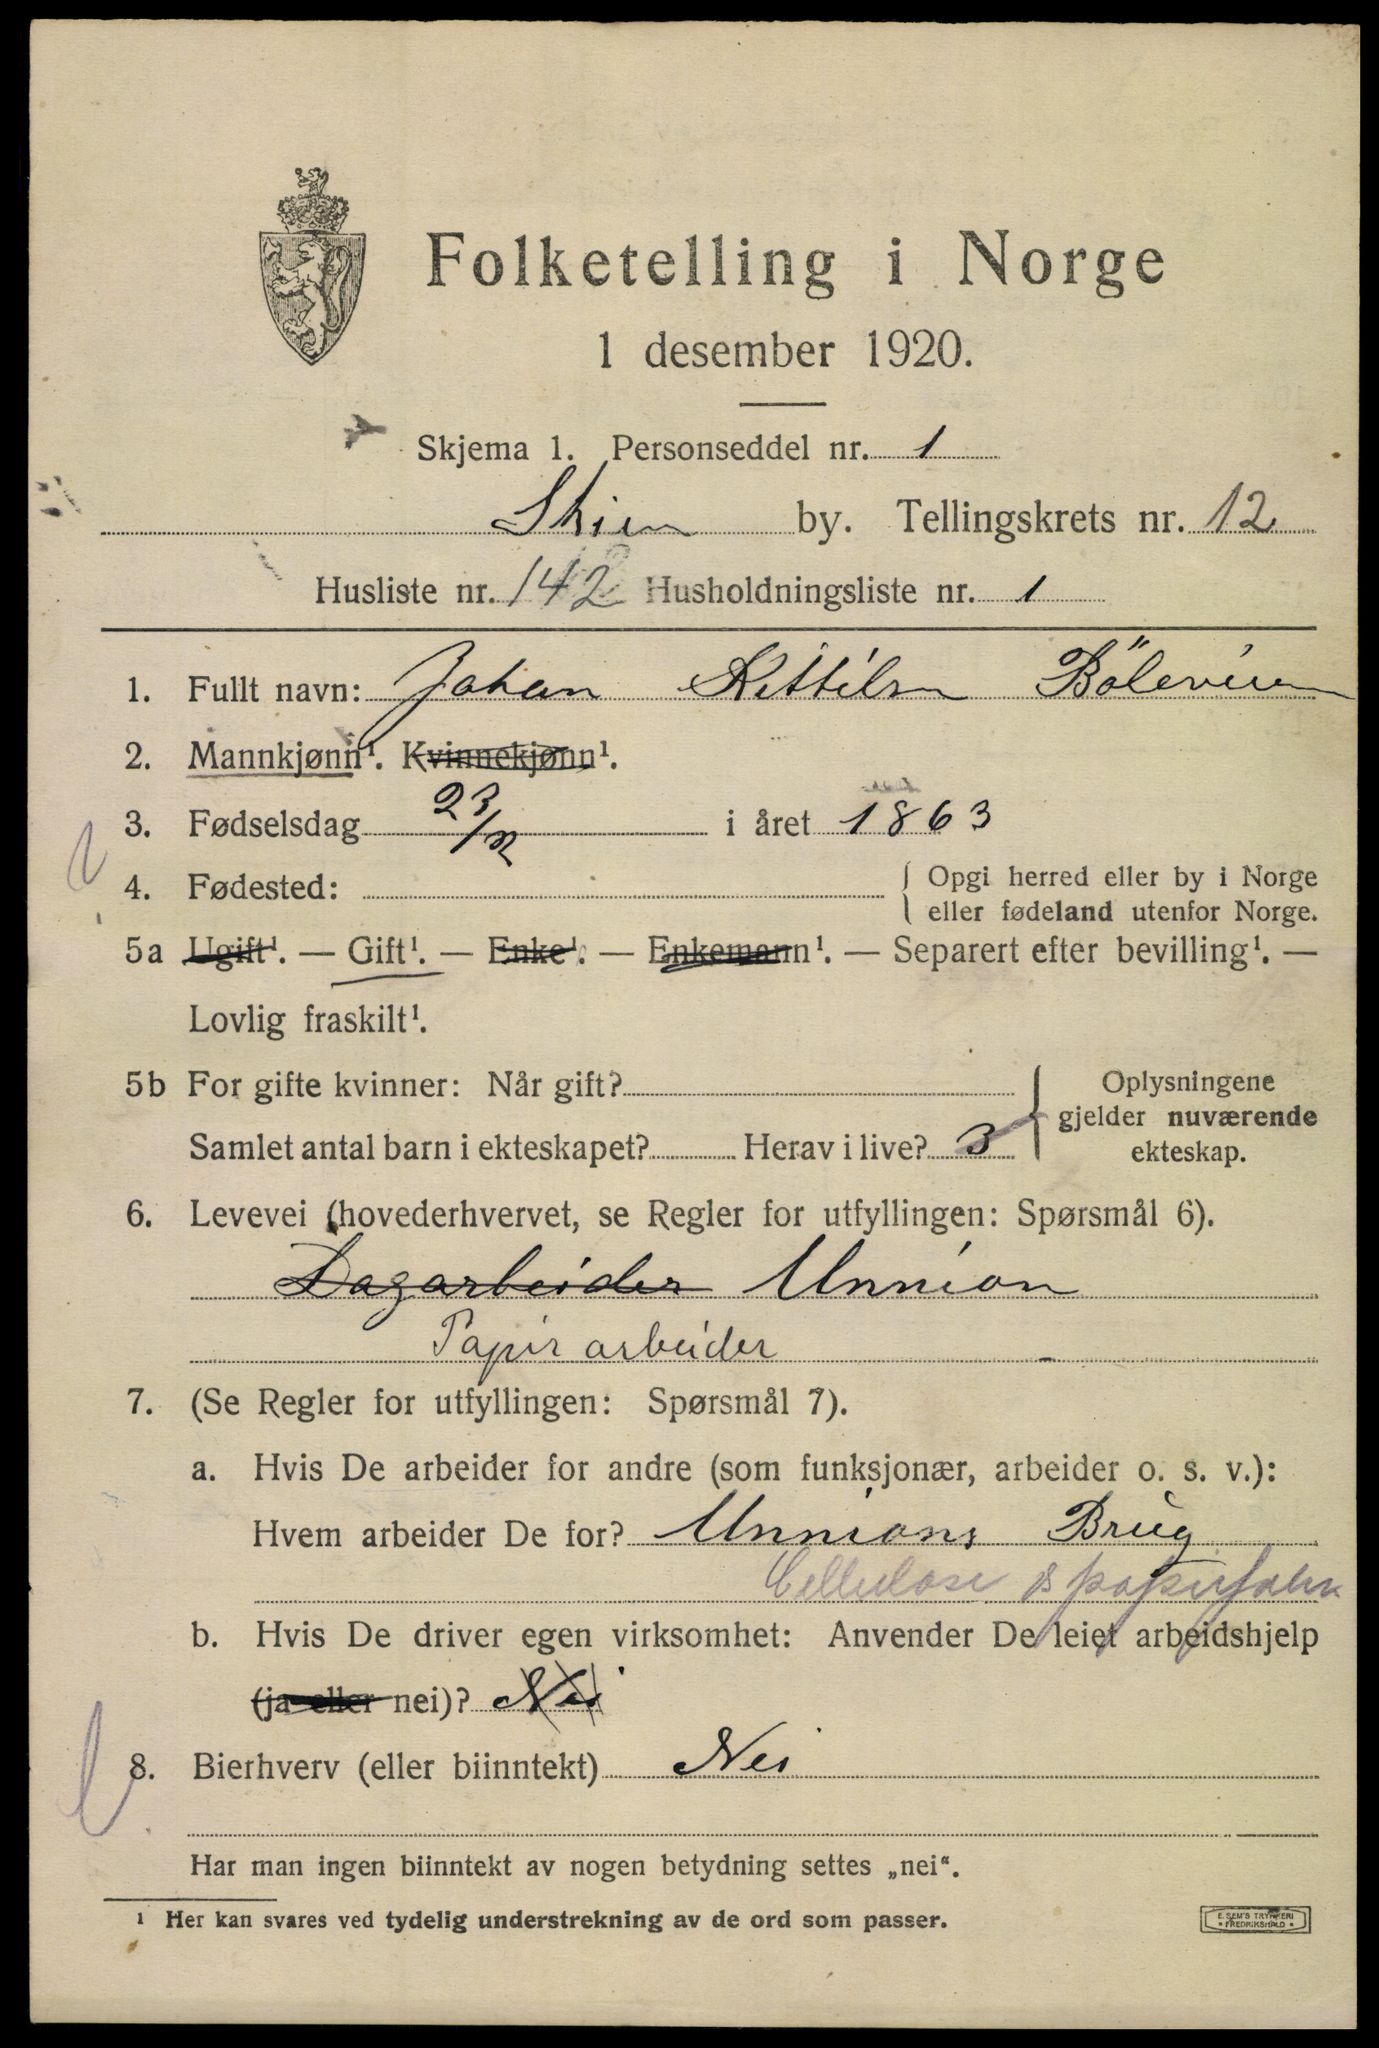 Folketelling i Norge
1 desember 1920.
Skjema 1. Personseddel nr. 1
Skien by. Tellingskrets nr. 12
Husliste nr. 142 Husholdningsliste nr. 1
1. Fullt navn: Johan Kittilsen Böleveien
2. Mannkjønn¹. Kvinnekjønn¹.
3. Fødselsdag 23/12 i året 1863
4. Fødested: Opgi herred eller by i Norge
eller fødeland utenfor Norge.
5a Ugift¹. — Gift¹. — Enke¹. — Enkemann¹. — Separert efter bevilling¹. —
Lovlig fraskilt¹.
5b For gifte kvinner: Når gift? Oplysningene
gjelder nuværende
Samlet antal barn i ekteskapet? Herav i live? 3 ekteskap.
6. Levevei (hovederhvervet, se Regler for utfyllingen: Spørsmål 6).
Dagarbeider Unnion
Papir arbeider
7. (Se Regler for utfyllingen: Spørsmål 7).
a. Hvis De arbeider for andre (som funksjonær, arbeider o. s. v.):
Hvem arbeider De for? Unnions Brug
Cellulose & papirfabr
b. Hvis De driver egen virksomhet: Anvender De leiet arbeidshjelp
(ja eller nei)? Nei
8. Bierhverv (eller biinntekt) Nei
Har man ingen biinntekt av nogen betydning settes „nei“.
¹ Her kan svares ved tydelig understrekning av de ord som passer.
E. SEM'S TRYKKERI
FREDRIKSHALD